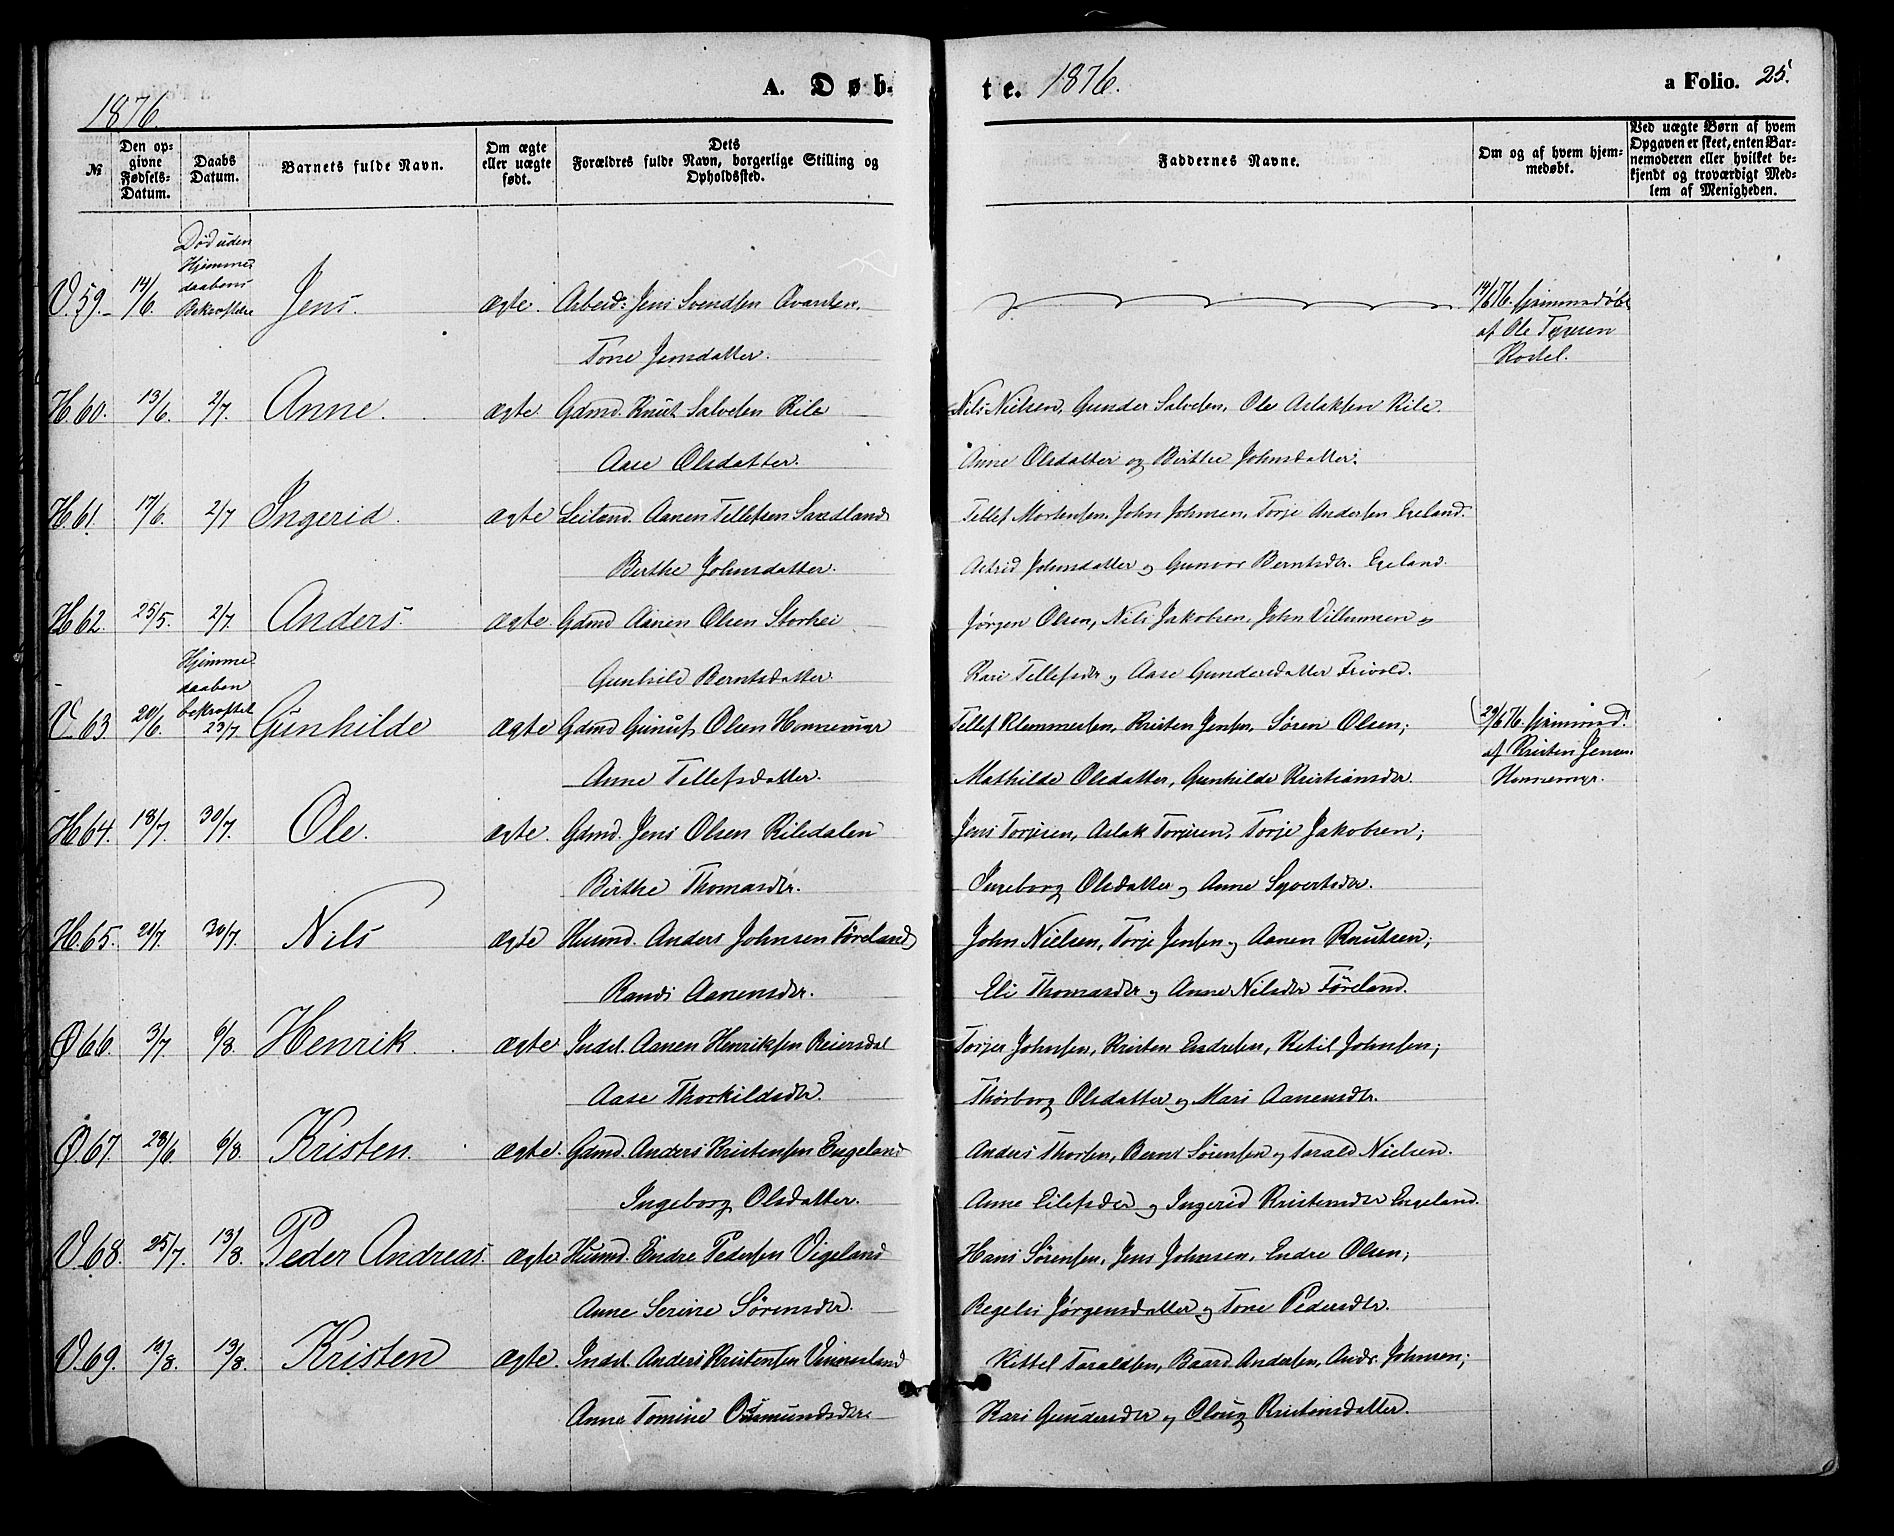 1876.
A. Døb-
te. 1876.
a Folio. 25.
№
Den op-
givne
Fødsels-
Datum.
Daabs
Datum.
Barnets fulde Navn.
Om ægte
eller uægte
født.
Dets
Forældres fulde Navn, borgerlige Stilling og
Opholdssted.
Faddernes Navne.
Om og af hvem hjem-
medøbt.
Ved uægte Børn af hvem
Opgaven er skeet, enten Bar-
nemoderen eller hvilket be-
kjendt og troværdigt Med-
lem af Menigheden.
Død uden
Hjemme-
daabens
Bekræftelse
V. 59. 14/6. Jens. ægte. Arbeid: Jens Svendsen
14/6 76. hjemmedøbt
af Ole
Tone Jensdatter.
H. 60. 13/6. 2/7. Anne. ægte. Gdmd. Knut Salvesen Rile Nils Nielsen, Gunder Salvesen, Ole Aslaksen Rile.
Aase Olsdatter. Anne Olsdatter og Birthe Johnsdatter.
H. 61. 17/6. 2/7 Ingerid. ægte Leiland. Aanen Tellefsen Tellef Mortensen, John Johnsen, Torje Andersen Egeland.
Birthe Johnsdatter. Astrid Johnsdatter og Gunvor Berntsdr. Egeland.
H. 62. 25/5. 2/7. Anders. ægte. Gdmd Aanen Olsen Storhei Jørgen Olsen, Nils Jakobsen, John Villumsen og
Gunhild Berntsdatter. Kari Tellefsdr og Aase Gundersdatter Frivold.
Hjemme
daaben
bekræftet
V. 63 20/6. 23/7. Gunhilde ægte Gdmd Gunuf Olsen Honnemyr Tellef Klemmetsen, Kristen Jensen, Søren Olsen;
af Kristen Jensen
Honnemyr.
Anne Tellefsdatter. Mathilde Olsdatter, Gunhilde Kristiansdr.
H. 64. 18/7. 30/7. Ole. ægte. Gdmd. Jens Olsen Riledalen Jens Torjesen, Aslak Torjesen, Torje Jakobsen;
Birthe Thomasdr. Ingeborg Olsdatter og Anne Syvertsdr.
H. 65. 21/7. 30/7. Nils ægte Husmd. Anders Johnsen Føreland John Nielsen, Torje Jensen og Aanen Knutsen;
Randi Aanensdr. Eli Thomasdr og Anne Nilsdr Føreland.
Ø 66. 3/7. 6/8. Henrik. ægte Indst. Aanen Henriksen Reiersdal Torjer Johnsen, Kristen Endresen, Ketil Johnsen;
Aase Thorkildsdr. Thorborg Olsdatter og Mari Aanensdr.
Ø 67. 28/6. 6/8. Kristen. ægte. Gdmd. Anders Kristensen Engeland Anders Thorsen, Bernt Sørensen og Tarald Nielsen.
Ingeborg Olsdatter. Anne Eilefsdr og Ingerid Kristensdr Engeland.
V. 68. 25/7. 13/8. Peder Andreas. ægte Husmd. Endre Pedersen Vigeland Hans Sørensen, Jens Johnsen, Endre Olsen;
Anne Serine Sørensdr. Regeli Jørgensdatter og Tone Pedersdr.
V. 69. 10/8. 13/8. Kristen ægte. Indst. Anders Kristensen Vennesland Kittel Taraldsen, Baard Andersen, Ands. Johnsen;
Anne Tomine Osmundsdr. Kari Gundersdr og Oloug Kristensdatter.